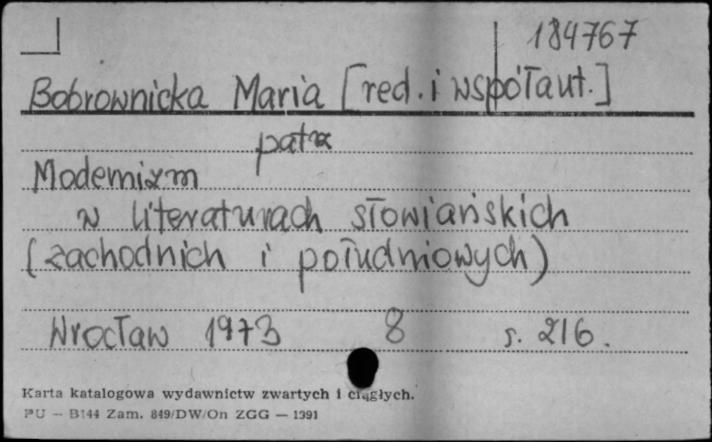 184767
Bobrownicka Maria [red. i współaut.]
patrz
Modernizm
w literaturach słowiańskich
(zachodnich i południowych)
Wrocław 1973 8 s. 216.
Karta katalogowa wydawnictw zwartych i ciągłych.
PU — B144 Zam. 849/DW/On ZGG — 1391